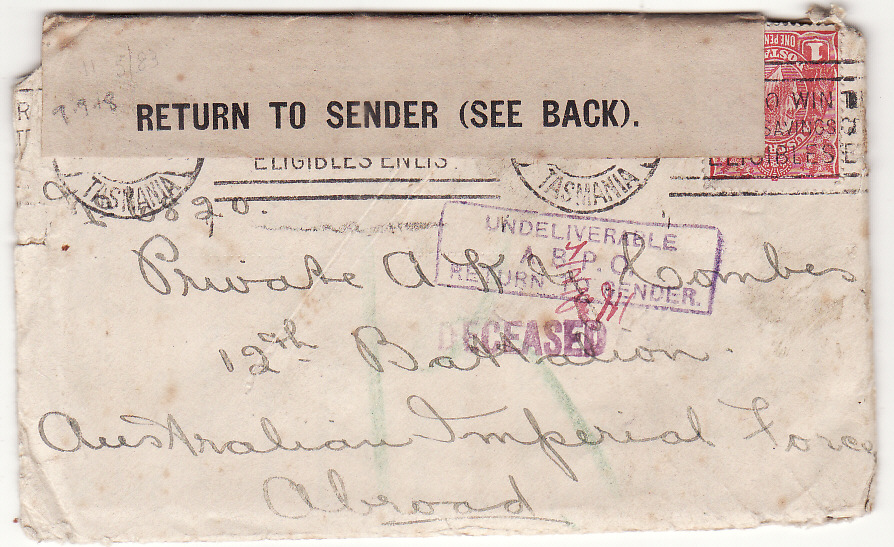 9.9.18
RETURN TO SENDER (SEE BACK).
ONE PENNY
1
O WIN
SAVINGS
ELIGIBLES E
ELIGIBLES ENLIS
TASMANIA
TASMANIA
UNDELIVERABLE
A.B.P.O.
RETURN TO SENDER.
DECEASED
Private A Combes
12th Battalion
Australian Imperial Force
Abroad